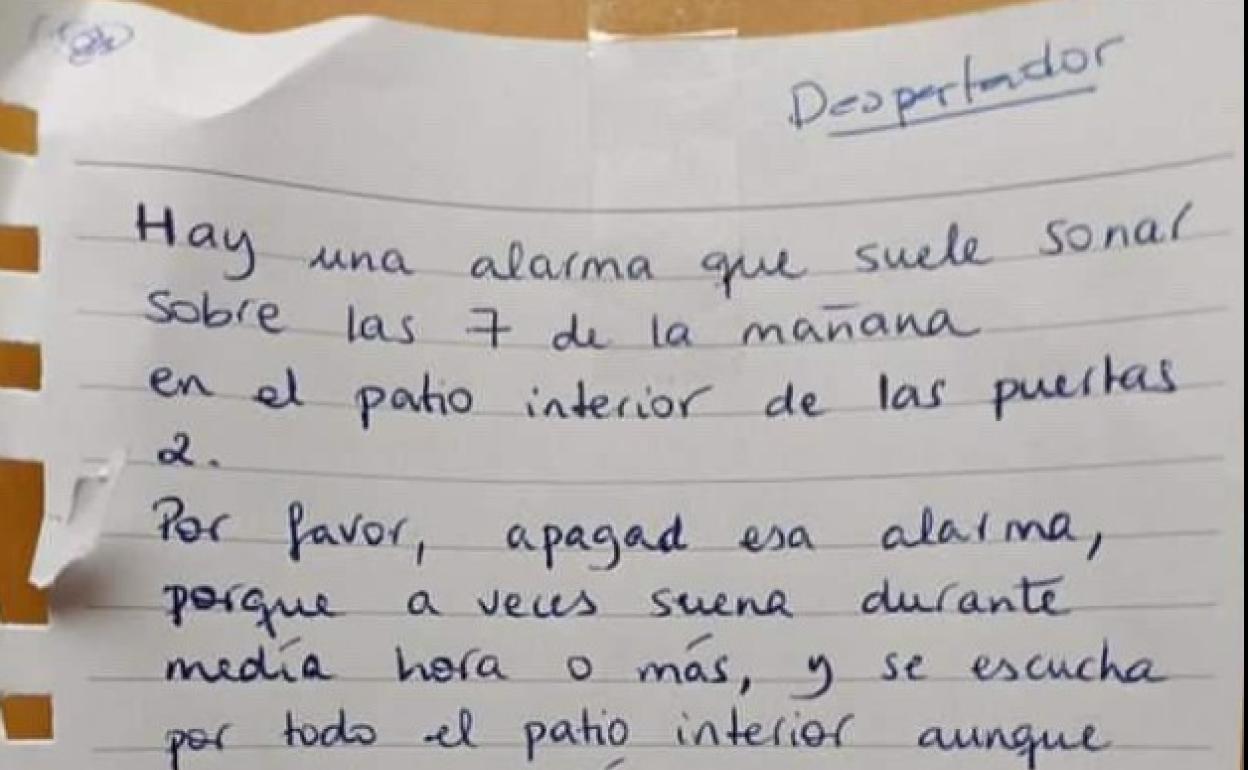 Despertador
Hay una alarma que suele sonar
sobre las 7 de la mañana
en el patio interior de las puertas
2.
Por favor, apagad esa alarma,
porque a veces suena durante
media hora o más, y se escucha
por todo el patio interior aunque